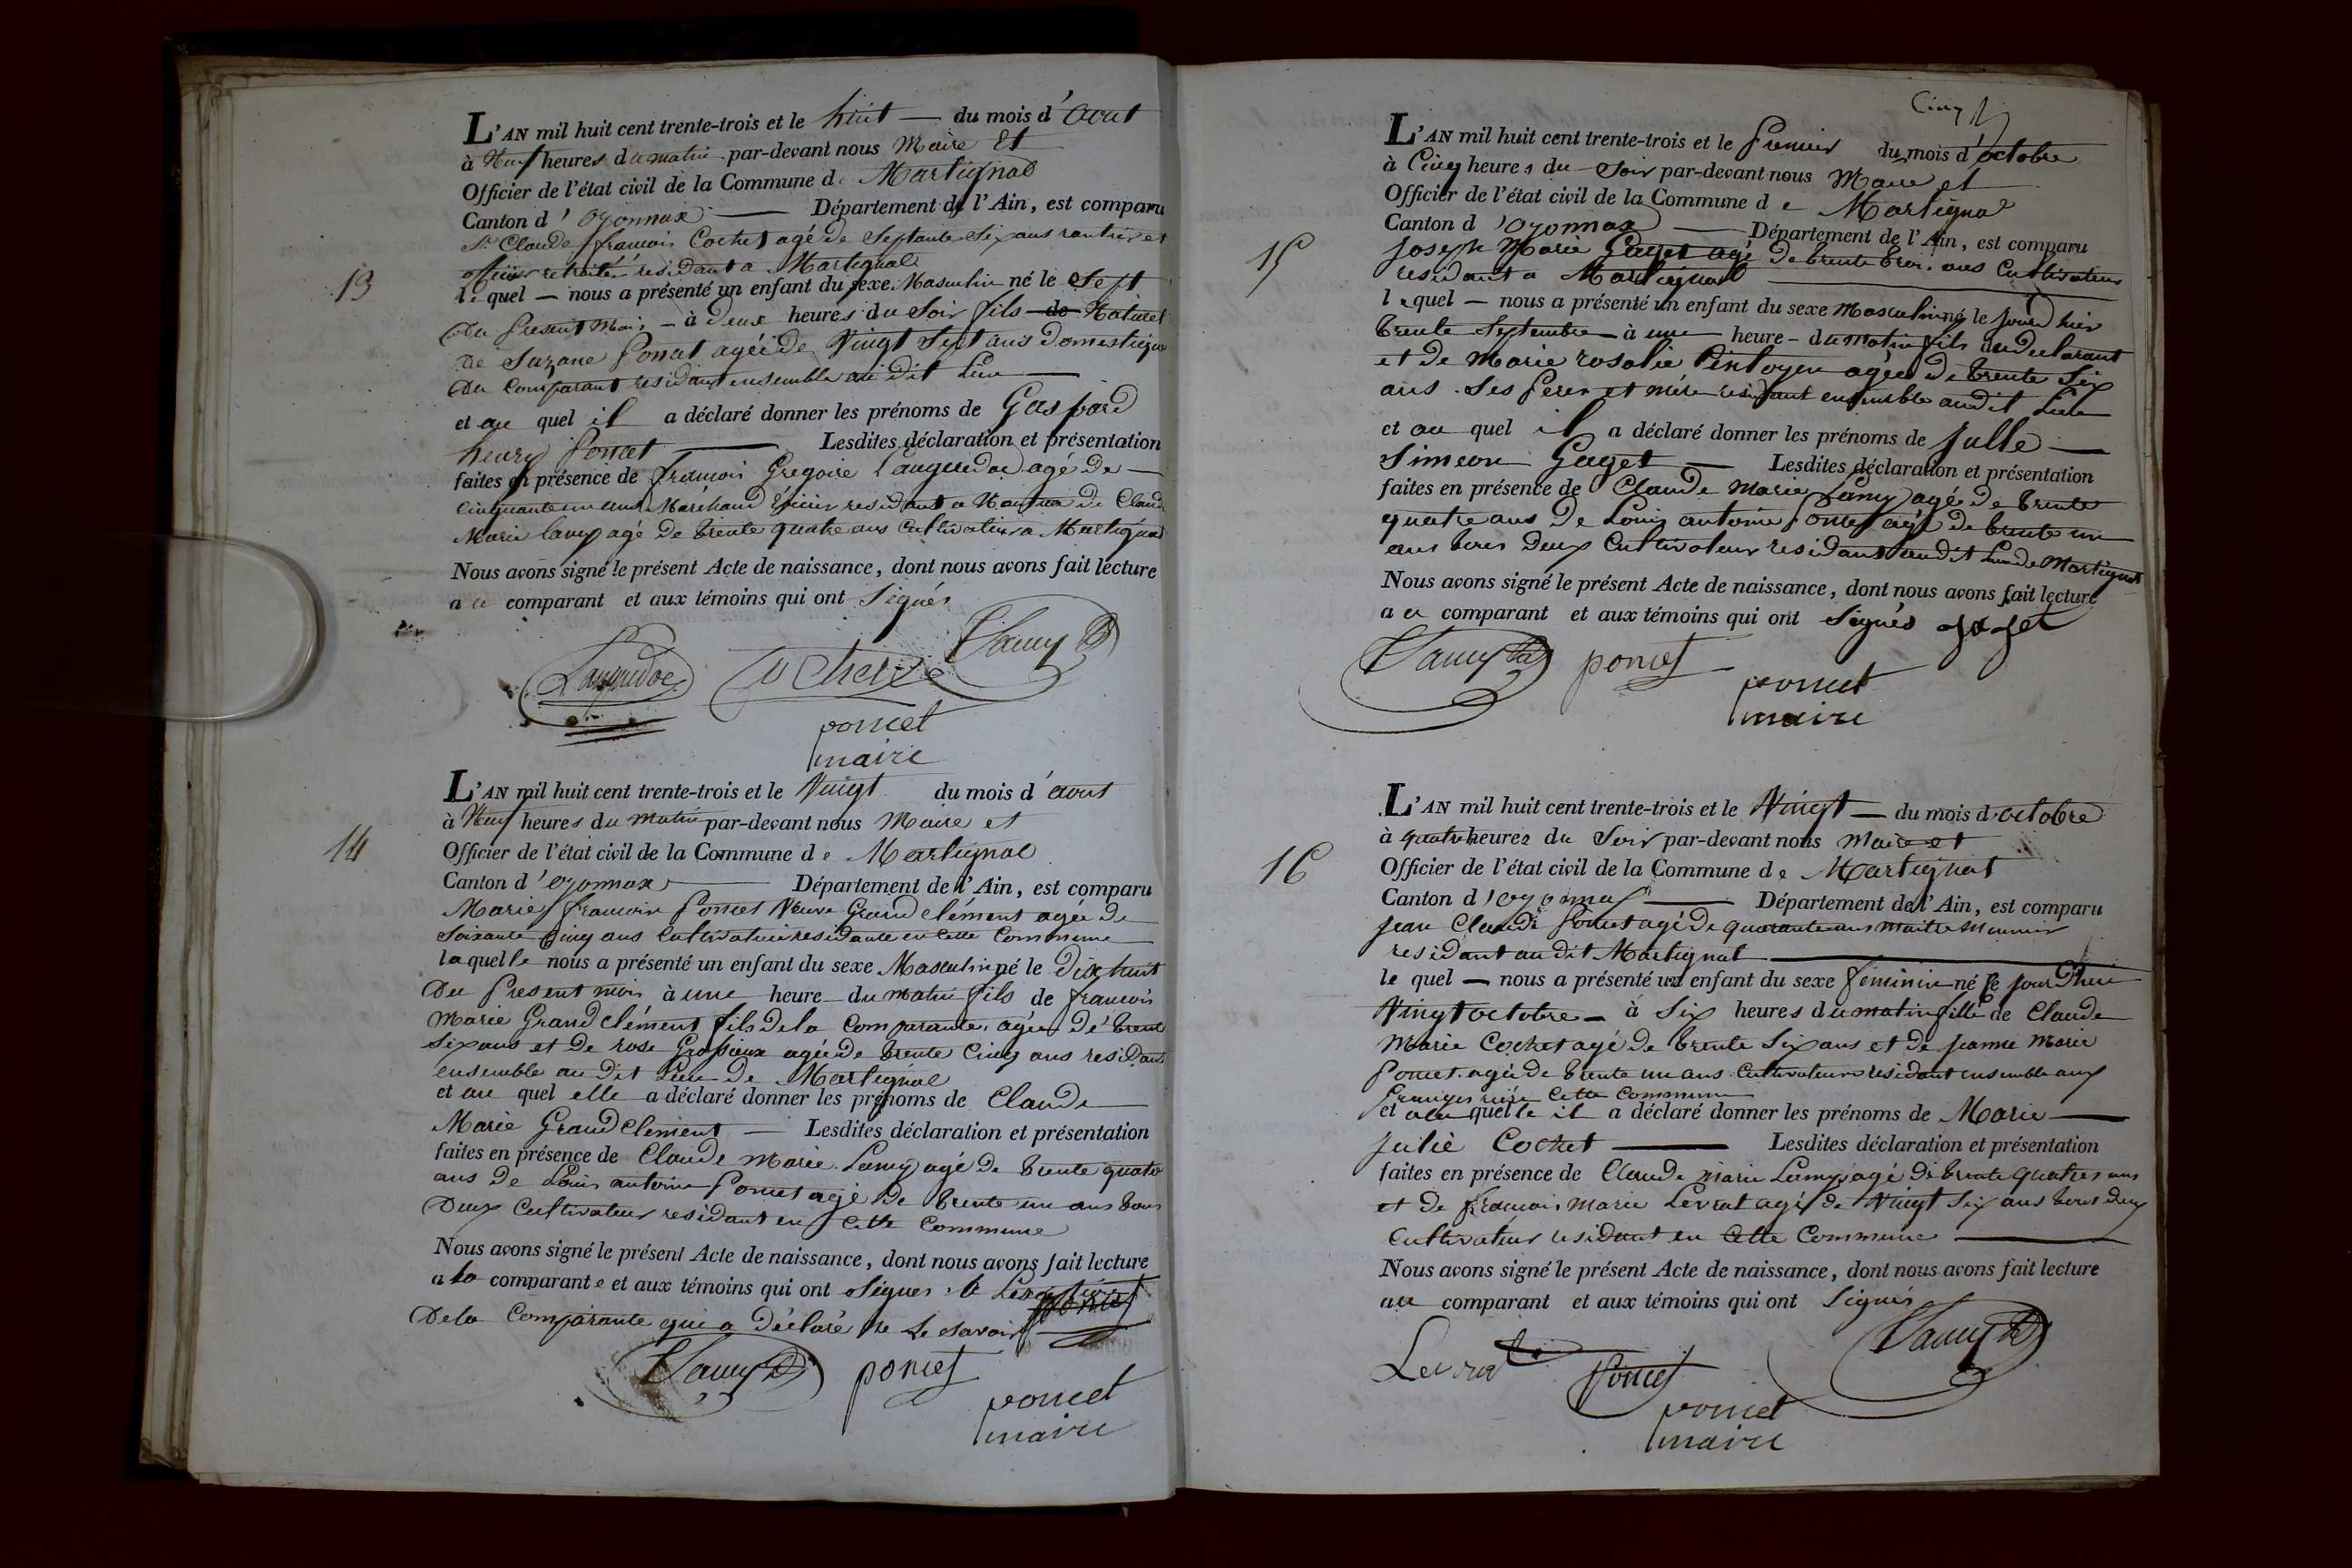 L'AN mil huit cent trente-trois et le huit — du mois d'aout
à Neuf heures du matin par-devant nous Maire Et
Officier de l'état civil de la Commune d Martignat
Canton d'oyonnax — Département de l'Ain, est comparu
Sr Claude francois Cochet agé de Septante Six ans rantier et
officier retraité residant a Martignat
13
le quel — nous a présenté un enfant du sexe Masculin né le Sept
du present Mois — à deux heures du Soir fils de Naturel
de Suzane Poncet agée de Vingt Sept ans Domestique
du Comparant residant ensemble au dit Lieu
et au quel il a déclaré donner les prénoms de Gaspard
henry Poncet — Lesdites déclaration et présentation
faites en présence de francois Gregoire Languedoc agé de —
Cinquante un ans Marchand Epicier residant a Nantua de Claude
Marie Lamy agé de trente quatre ans Cultivateur a Martignat
Nous avons signé le présent Acte de naissance, dont nous avons fait lecture
au comparant et aux témoins qui ont Signés
Languedoc Cochet Lamy
poncet
maire
L'AN mil huit cent trente-trois et le Vingt du mois d'aout
à Neuf heures du matin par-devant nous Maire et
14
Officier de l'état civil de la Commune de Martignat
Canton d'oyonnax — Département de l'Ain, est comparu
Marie francoise Poncet Veuve Grand clément agée de
Soixante Cinq ans Cultivatrice residante en Cette Commune
la quelle nous a présenté un enfant du sexe Masculin né le dix huit
du present mois à une heure du matin fils de francois
Marie Grand clément fils de la Comparante, agée de trente
Six ans et de rose agée de trente Cinq ans residans
ensemble au dit Lieu de Martignat
et au quel elle a déclaré donner les prénoms de Claude
Marie Grand Clement — Lesdites déclaration et présentation
faites en présence de Claude Marie Lamy agé de trente quatre
ans de Louis antoine Poncet agé de trente un ans tous
deux Cultivateur residant en Cette Commune
Nous avons signé le présent Acte de naissance, dont nous avons fait lecture
a la comparante et aux témoins qui ont Signés
de la Comparante qui a déclaré ne le Savoir
Lamy poncet
poncet
maire
Cinq
L'AN mil huit cent trente-trois et le Premier du mois d'octobre
à Cinq heures du Soir par-devant nous Maire et
Officier de l'état civil de la Commune de Martignat
Canton d'oyonnax — Département de l'Ain, est comparu
15
Joseph Marie Gaget agé de trente trois ans Cultivateur
residant a Martignat
le quel — nous a présenté un enfant du sexe Masculin né le jourd hier
trente Septembre — à une heure - du matin fils du declarant
et de Marie rosalie agée de trente Six
ans. Ses Perer et mere residant ensemble audit Lieu
et au quel il a déclaré donner les prénoms de Julle —
Simeon Gaget — Lesdites déclaration et présentation
faites en présence de Claude Marie Lamy agé de trente
quatre ans de Louis antoine Poncet agé de trente un
ans tous deux Cultivateur residant audit Lieu de Martignat
Nous avons signé le présent Acte de naissance, dont nous avons fait lecture
au comparant et aux témoins qui ont Signés gaget
Lamy poncet
poncet
maire
L'AN mil huit cent trente-trois et le Vingt — du mois d'octobre
à quatre heures du Soir par-devant nous Maire et
16
Officier de l'état civil de la Commune de Martignat
Canton d'oyonnax — Département de l'Ain, est comparu
Jean Claude Poncet agé de quarante ans Maitre Meunier
residant au dit Martignat
le quel — nous a présenté un enfant du sexe féminin né le jour Dhui
Vingt octobre — à Six heures du matin fille de Claude
Marie Cochet agé de trente Six ans et de Jeanne Marie
Poncet agée de trente un ans Cultivateurs residant ensemble aux
Cette Commune
et a la quelle il a déclaré donner les prénoms de Marie —
Julie Cochet — Lesdites déclaration et présentation
faites en présence de Claude Marie Lamy agé de trente quatres ans
et de francois Marie Levrat agé de Vingt Six ans tous deux
Cultivateur residant en Cette Commune
Nous avons signé le présent Acte de naissance, dont nous avons fait lecture
au comparant et aux témoins qui ont Signés
Levrat Poncet Lamy
poncet
maire